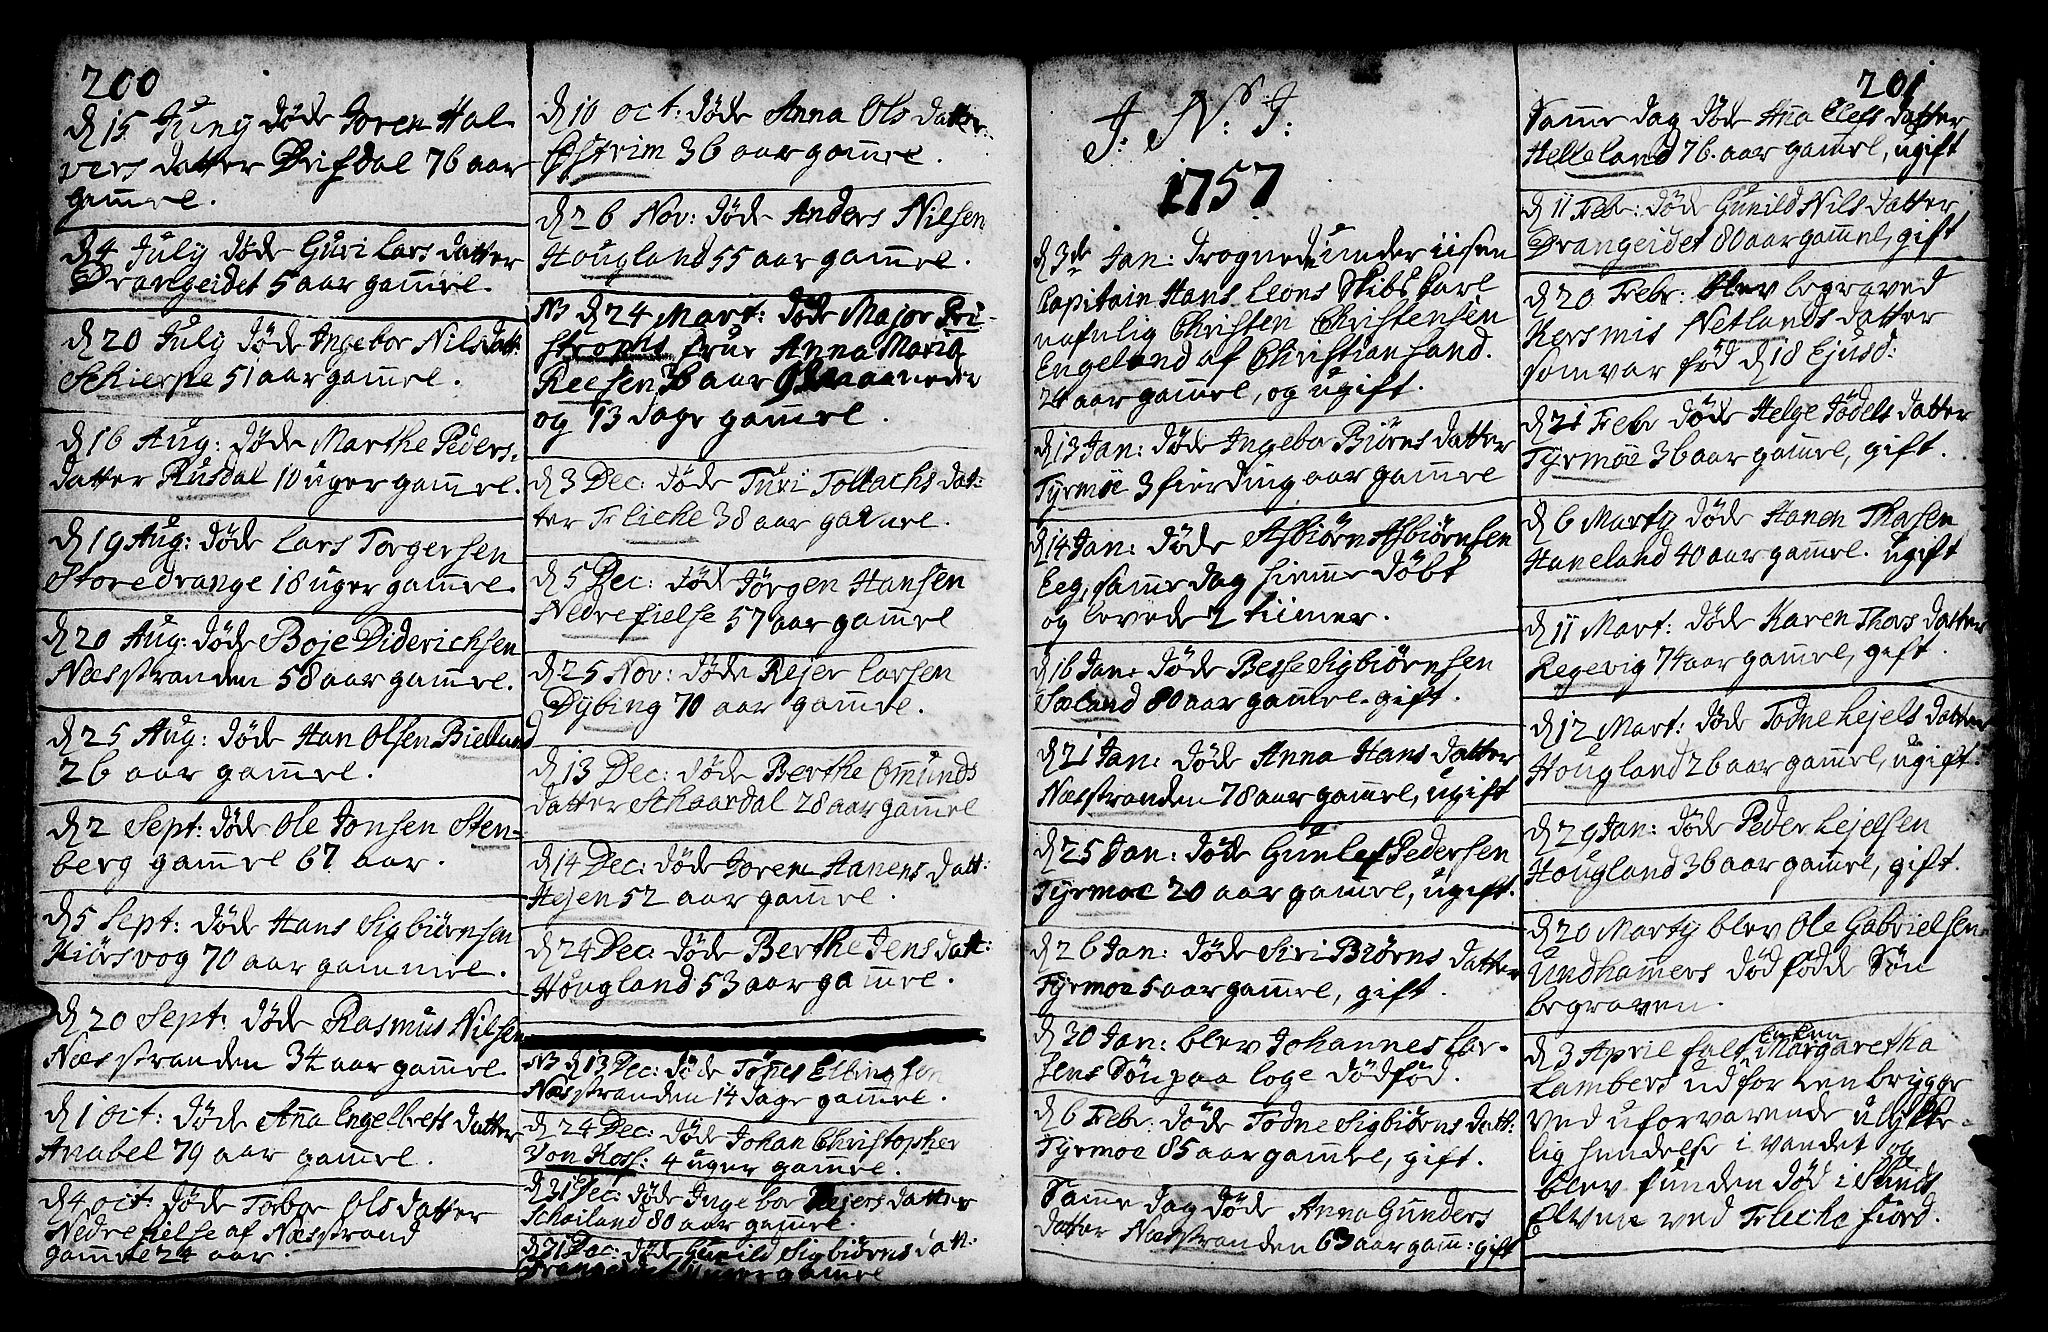 200
d 15 Juny døde Joren Hal-
vers datter Drifdal 76 aar
gam̄el.
d 4 July døde Guri Lars datter
Drangeidet 5 aar gam̄el.
d 20 July døde Ingebor Nils datt:
Schierpe 51 aar gam̄el.
d 16 Aug: døde Marthe Peders-
datter Rusdal 10 uger gam̄el.
d 19 Aug: døde Lars Torgersen
Storedrange 18 uger gam̄el.
d 20 Aug: døde Boje Diderichsen
Næsstranden 58 aar gam̄el.
d 25 Aug: døde Han Olsen Bielland
26 aar gam̄el.
d 2 Sept: døde Ole Jonsen Sten-
berg gam̄el 67 aar.
d 5 Sept: døde Hans Sigbiørnsen
Kiørsvog 70 aar gammel.
d 20 Sept: døde Rasmus Nilsen
Næsstranden 34 aar gam̄el.
d 1 oct: døde An̄a Engelbrets datter
Anabel 79 aar gam̄el.
d 4 oct: døde Torbor Ols datter
Nedre fielse af Næsstrand
gam̄el 24 aar.
d 10 oct: døde Anna Ols datter:
Østrim 36 aar gam̄el.
d 26 Nov: døde Anders Nilsen
Hougland 55 aar gam̄el.
NB d 24 Mart: døde Major Bri-
strophs frue Anna Maria
Reesen 36 aar maaneder
og 13 dage gam̄el.
d 3 Dec: døde Turi Tollachs dat-
ter Fleche 38 aar gam̄el.
d 5 Dec: døde Jørgen Hansen
Nedre fielse 57 aar gam̄el
d 25 Nov: døde Rejer Larsen
Dybing 70 aar gam̄el.
d 13 Dec: døde Berthe Om̄unds
datter Schaardal 28 aar gam̄el
d 14 Dec: døde Joren Hanens datt:
Hejen 52 aar gam̄el.
d 24 Dec: døde Berthe Jens datt:
Hougland 53 aar gam̄el.
NB d 13 Dec: døde Tønes Ellingsen
Næsstranden 14 dage gam̄el.
d 24 Dec: døde Johan Christopher
Von Koss: 4 uger gam̄el.
d 31 Dec: døde Ingebor Rejers datter
Schoiland 80 aar gam̄el.
d 31 Dec: døde Gunild Sigbiørns datt:
Drangeidet uger gam̄el
J: N: J:
1757
d 3de Jan: drognede under iisen
Capitain Hans Leons Skibs Karl
nafnlig Christen Christensen
Engeland af Christiansand.
24 aar gam̄el, og ugift.
d 13 Jan: døde Ingebor Biørns datter
Tyrmoe 3 fierding aar gam̄el
d 14 Jan: døde Asbiørn Asbiørnsen
Eeg, sam̄e dag hiem̄e døbt
og levede 2 tiimer.
d 16 Jan: døde Besse Sigbiørnsen
Sæland 80 aar gam̄el. gift.
d 21 Jan: døde Anna Hans datter
Næsstranden 78 aar gam̄el, ugift
d 25 Jan: døde Gunlef Pedersen
Tyrmoe 20 aar gam̄el, ugift.
d 26 Jan: døde Siri Biørns datter
Tyrmoe 5 aar gam̄el, gift.
d 30 Jan: blev Johannes Lar-
sens Søn paa Loge dødfød.
d 6 Febr: døde Todne Sigbiørns datt:
Tyrmoe 85 aar gam̄el, gift.
Sam̄e dag døde Anna Gunders
datter Næsstranden 63 aar gam̄: gift
201
Sam̄e dag døde An̄a Elefs datter
Helleland 76. aar gam̄el, ugift
d 11 Febr: døde Gunild Nils datter
Drangeidet 80 aar gam̄el, gift
d 20 Febr: blev begraved
Kersmis Netlands datter
som var fød d 18 Ejusd:
d 21 Febr døde Helge Tødels datter
Tyrmoe 36 aar gam̄el, gift.
d 6 Marty døde Hanen Thosen
Haneland 40 aar gam̄el. ugift
d 11 Mart: døde Karen Thors datter
Regevig 74 aar gam̄el, gift.
d 12 Mart: døde Todne Lejels datter
Hougland 26 aar gam̄el, ugift.
d 29 Jan: døde Peder Lejelsen
Hougland 36 aar gam̄el, gift.
d 20 Marty blev Ole Gabrielsen
Undham̄ers død fødde Søn
begraven.
d 3 April falt Enken Margaretha
Lambers ud for Lenbrygge
ved uforvarende ulykke-
lig hendelse i vandet og
blev funden død i Sunds
Elven ved Fleche fiord.